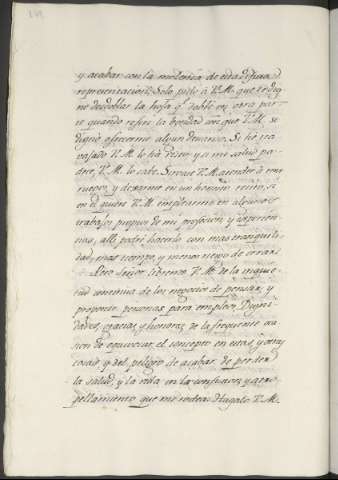 y acabar con la molestia de esta difusa
representacion. Solo pido a V.M. que se dig
ne de doblar la hoja q.e doblé en otra par-
te quando referí la bondad con que V.M. se
dignó ofrecerme algun descanso. Si he tra-
vajado V.M. lo ha visto, y si mi salud pa-
dece, V.M. lo sabe. Sirvase V.M. atender á mis
ruegos, y dexarme en un honesto retiro, si
en el quiere V.M. emplearme en algunos
trabajos propios de mi profesion y experien-
cias, alli podré hacerlo con mas tranquili-
dad, mas tiempo, y menos riesgo de errar.
Pero Señor libreme V.M. de la inquie-
tud continua de los negocios de pensar, y
proponer personas para empleos, Digni-
dades, gracias, y honores de la frequente oca-
sion de equivocar el concepto en estas, y otras
cosas y del peligro de acabar de perder
la salud, y la vida en la confusion, y atro-
pellamiento que me rodea. Hagalo V.M.